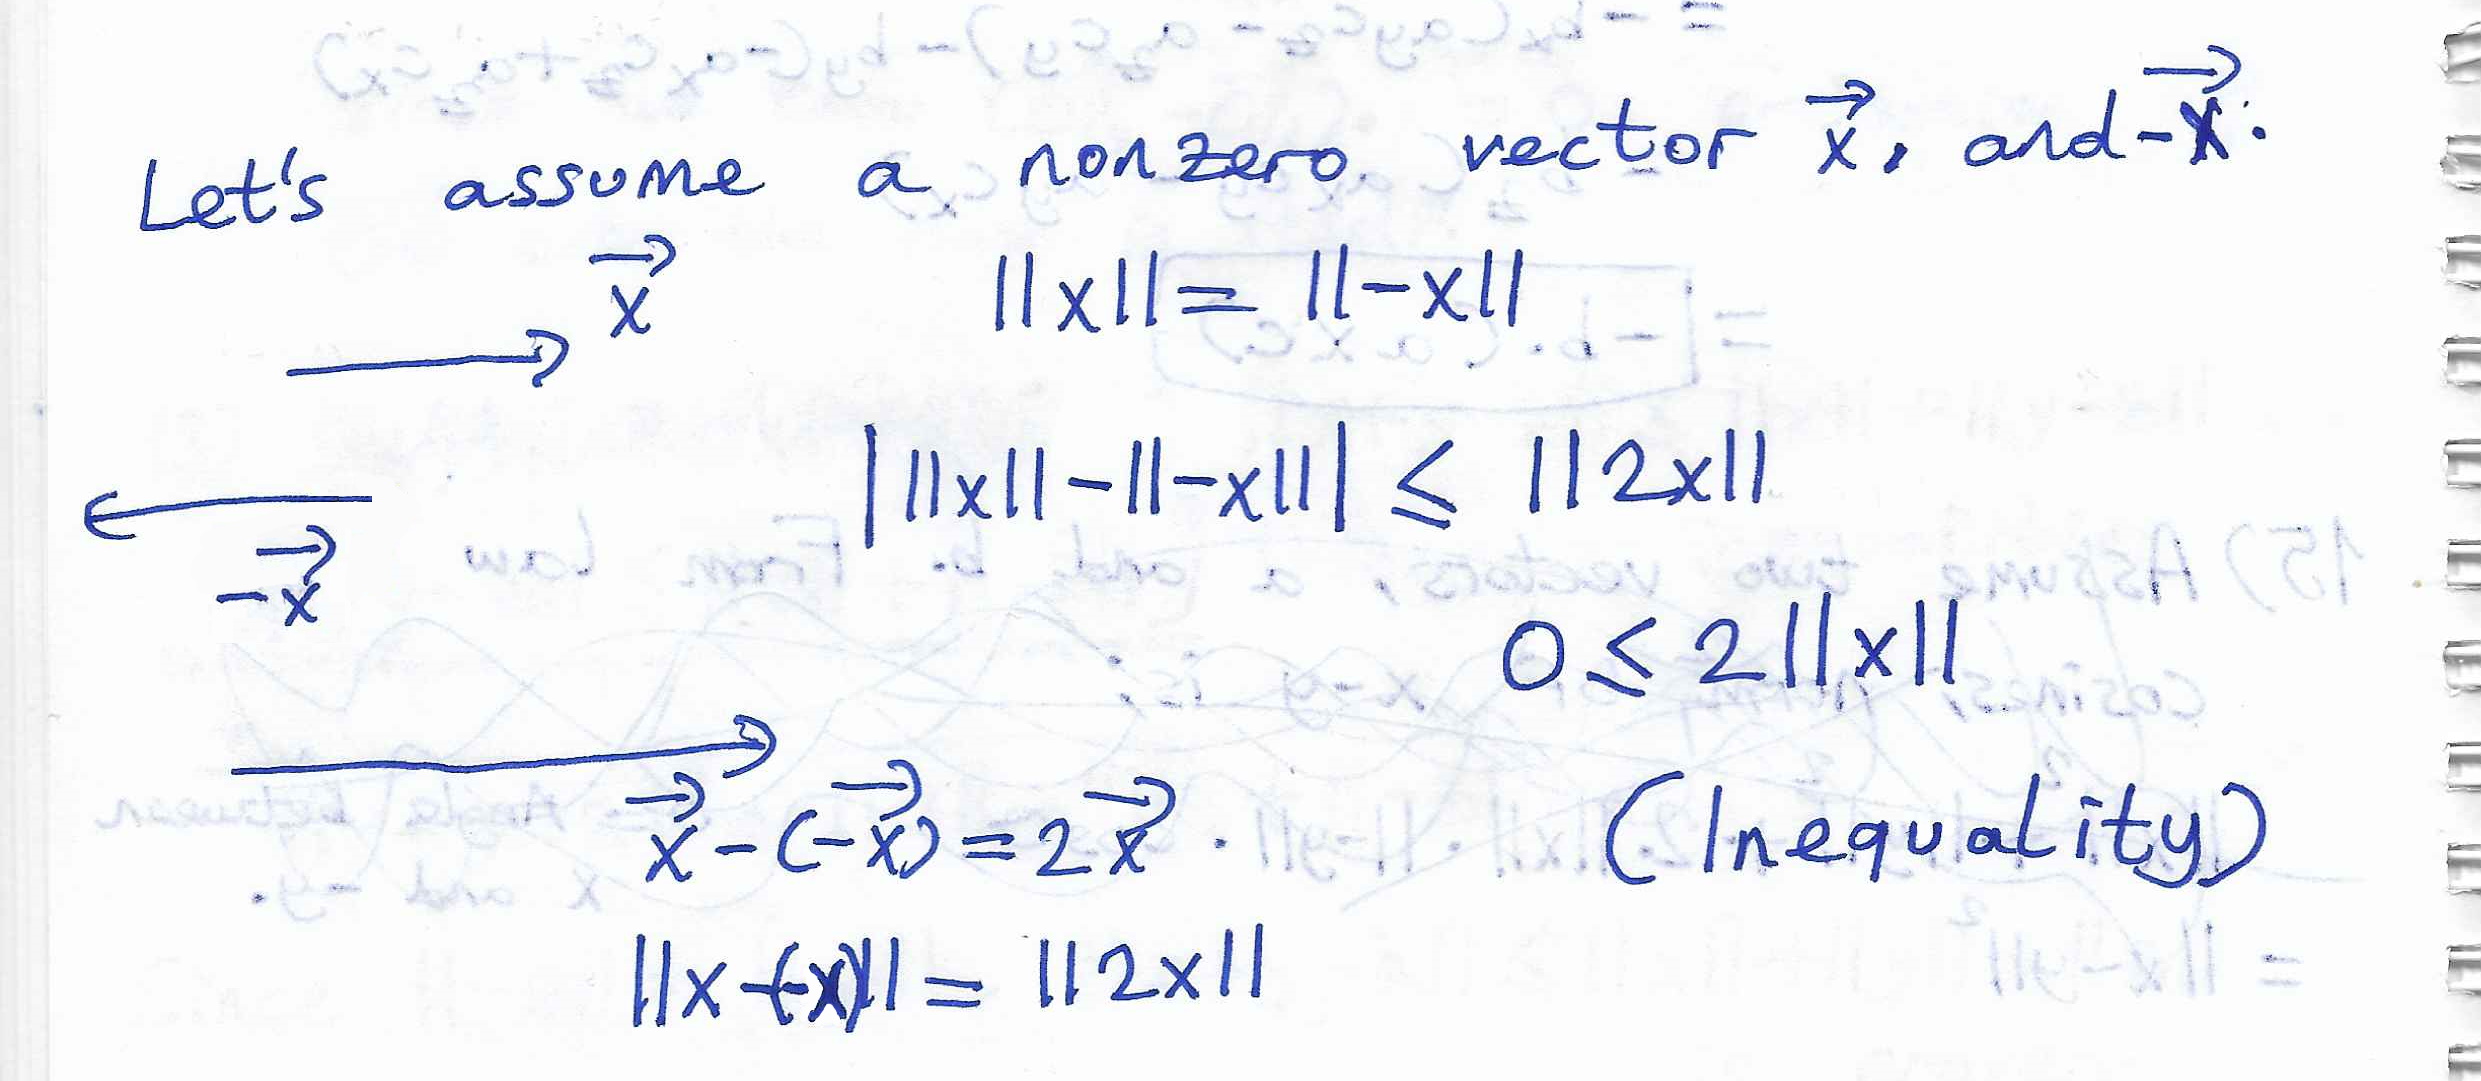 Let's assume a nonzero vector x⃗, and -x⃗.
x⃗ ||x|| = ||-x||
| ||x|| - ||-x|| | ≤ ||2x||
-x⃗
0 ≤ 2||x||
x⃗ - (-x⃗) = 2x⃗. (Inequality)
||x-(-x)|| = ||2x||